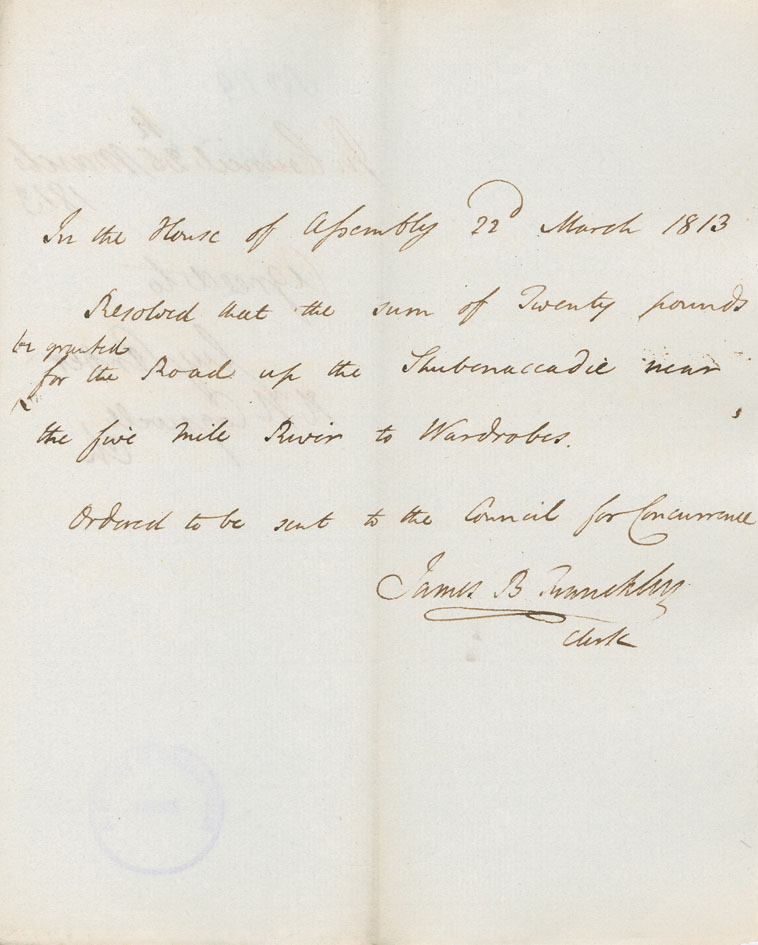 In the House of Assembly 22d March 1813
Resolved that the sum of Twenty pounds
be granted
for the Road up the Shubenaccadie near
the five Mile River to Wardrobes.
Ordered to be sent to the Council for Concurrence
James B Franckley
Clerk